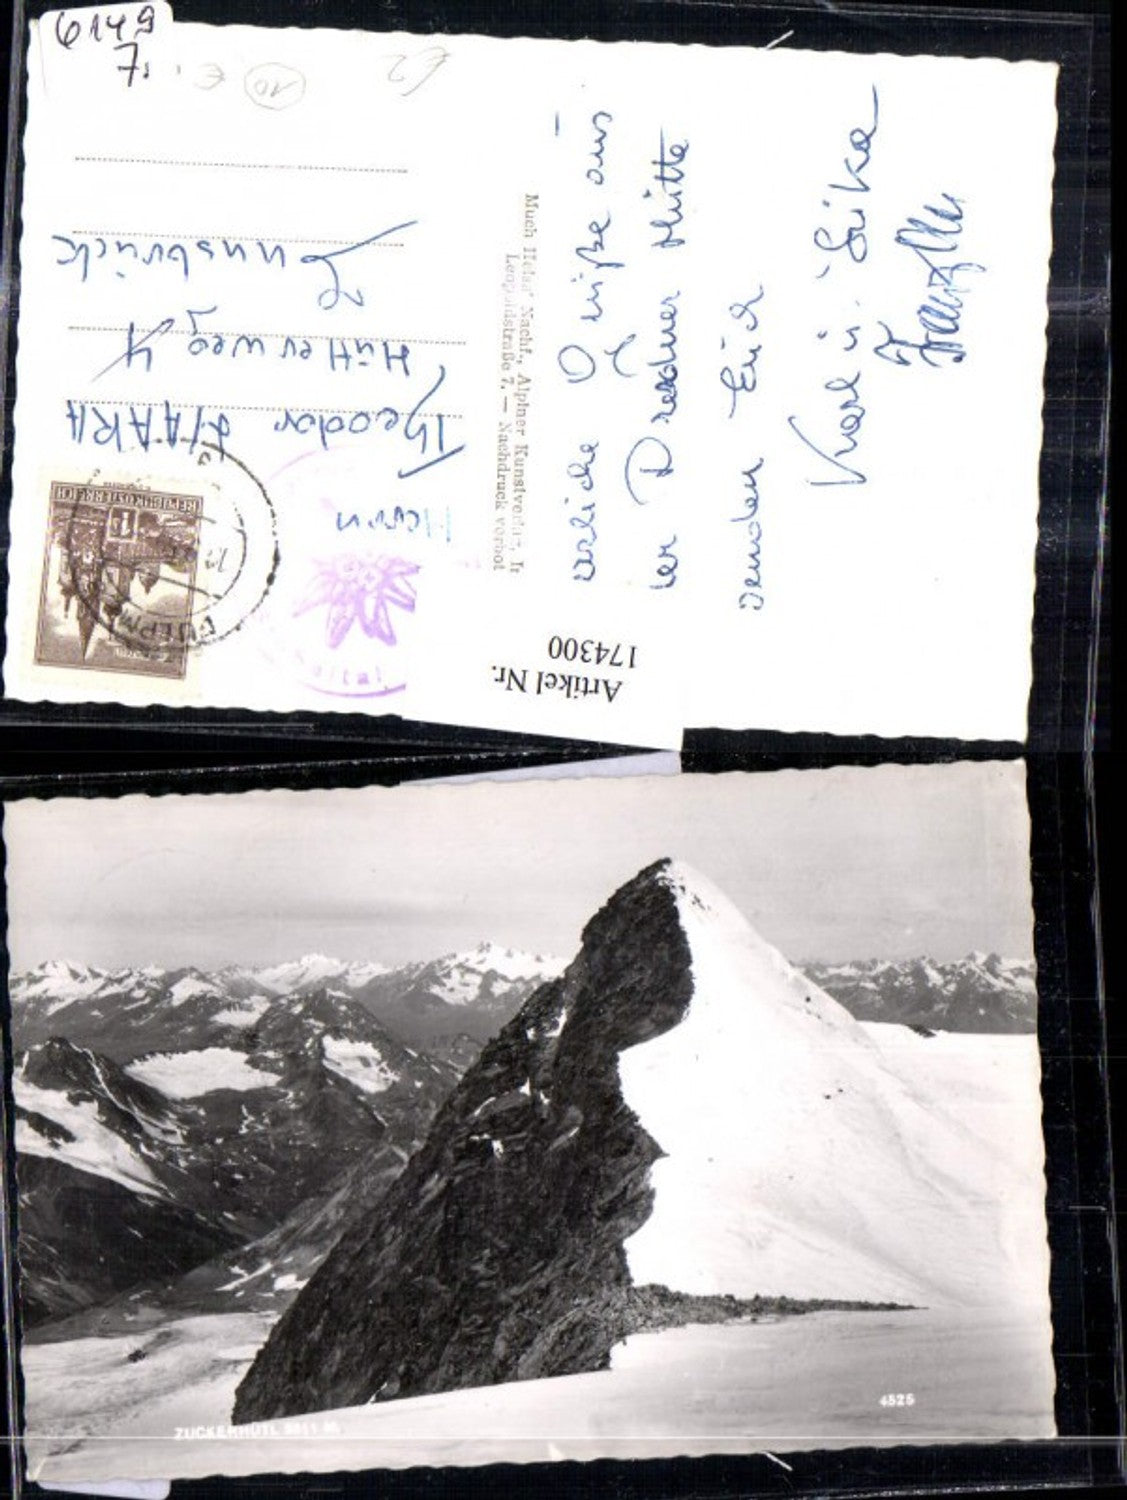 6149
7.
10 €
€2
Herrn
Theodor HAARA
Hütterweg 4
Innsbruck
REPUBLIK ÖSTERREICH
1 S
FULPM
Artikel Nr.
174300
Much Heiss' Nachf., Alpiner Kunstverlag, I
Leopoldstraße 7. — Nachdruck verbot
erzliche Grüße aus
der Dresdner Hütte
senden Euch
Karl u. Erika
ZUCKERHÜTL 3511 M.
4525